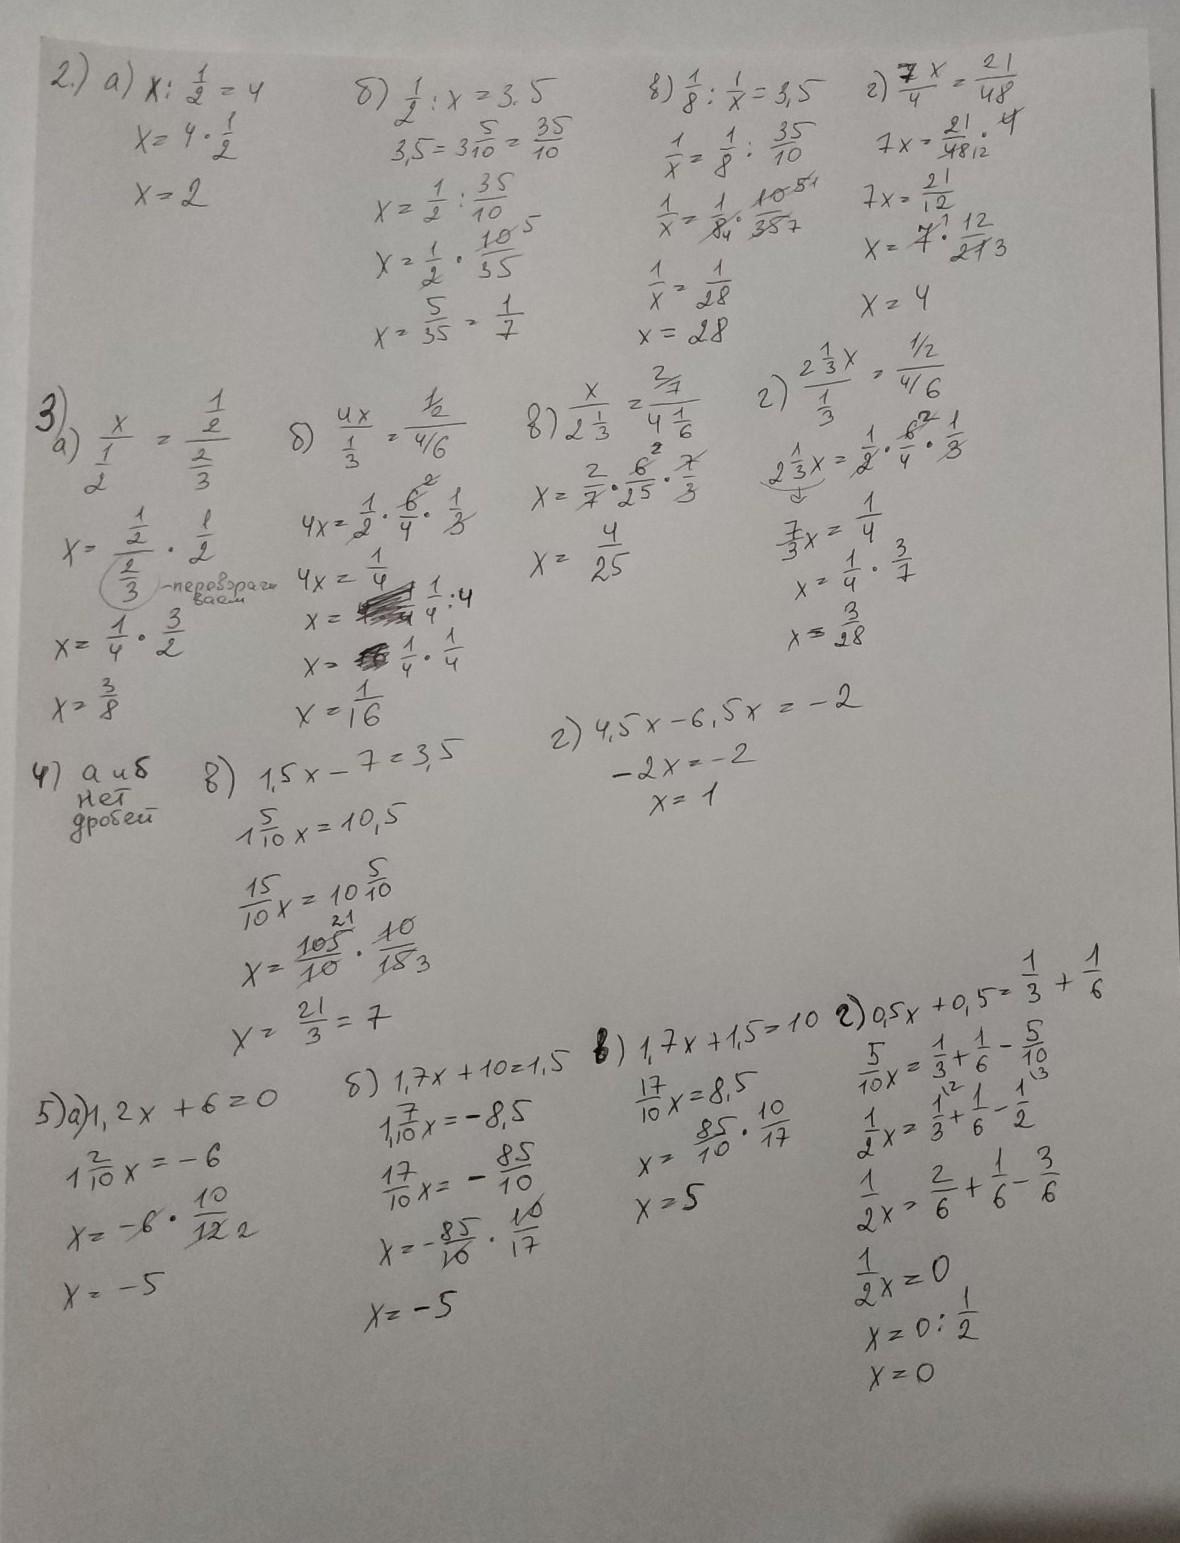 2.) а) x : 1/2 = 4
x = 4 · 1/2
x = 2
б) 1/2 : x = 3.5
3,5 = 3 5/10 = 35/10
x = 1/2 : 35/10
x = 1/2 · 10/35 5
x = 5/35 = 1/7
в) 1/8 : 1/x = 3,5
1/x = 1/8 : 35/10
1/x = 1/8 4 · 10 5 1/35 7
1/x = 1/28
x = 28
г) 7x/4 = 21/48
7x = 21/48 12 · 4
7x = 21/12
x = 7 1 · 12/21 3
x = 4
3)
а) x/(1/2) = (1/2)/(2/3)
x = (1/2)/(2/3) · 1/2
- перевораги
ваем
x = 1/4 · 3/2
x = 3/8
б) 4x/(1/3) = (1/2)/(4/6)
4x = 1/2 · 6 2/4 · 1/3
4x = 1/4
x = 1/4 : 4
x = 1/4 · 1/4
x = 1/16
в) x/(2 1/3) = (2/7)/(4 1/6)
x = 2/7 · 6 2/25 · 7/3
x = 4/25
г) (2 1/3 x)/(1/3) = (1/2)/(4/6)
2 1/3 x = 1/2 · 6 2/4 · 1/3
7/3 x = 1/4
x = 1/4 · 3/7
x = 3/28
4) а и б
нет
дробей
в) 1,5x - 7 = 3,5
1 5/10 x = 10,5
15/10 x = 10 5/10
x = 105 21/10 · 10/15 3
x = 21/3 = 7
г) 4,5x - 6,5x = -2
-2x = -2
x = 1
5) а) 1,2x + 6 = 0
1 2/10 x = -6
x = -6 · 10/12 2
x = -5
б) 1,7x + 10 = 1,5
1 7/10 x = -8,5
17/10 x = - 85/10
x = - 85/10 · 10/17
x = -5
в) 1,7x + 1,5 = 10
17/10 x = 8,5
x = 85/10 · 10/17
x = 5
г) 0,5x + 0,5 = 1/3 + 1/6
5/10 x = 1/3 + 1/6 - 5/10
1/2 x = 1\2/3 + 1/6 - 1\3/2
1/2 x = 2/6 + 1/6 - 3/6
1/2 x = 0
x = 0 : 1/2
x = 0